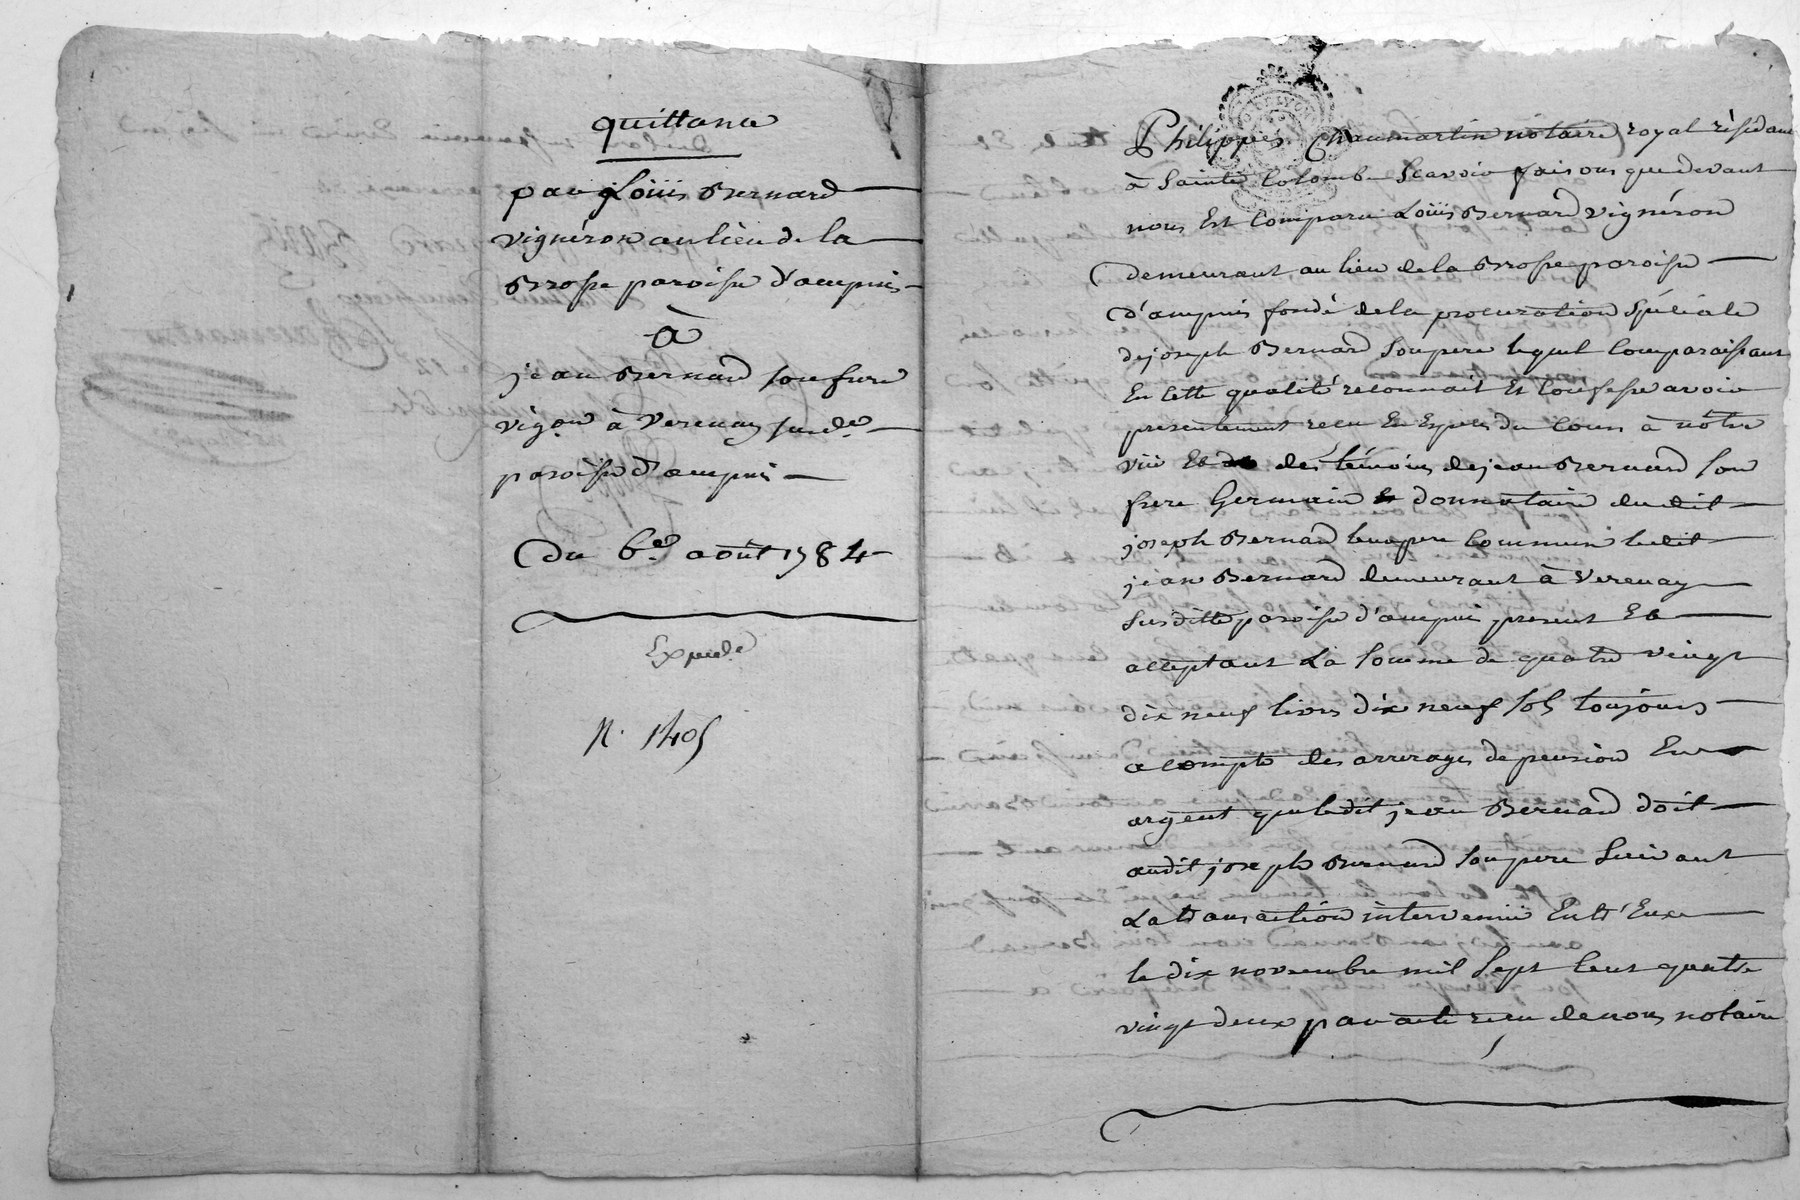 quittance
par Loüis Bernard
vignéron au lieu de la
Brosse paroisse d'ampuis
à
jean Bernard son frere
vigon à Verenay susde
paroisse d'ampuis
Du 6e aoüt 1784
Expede
N. 1405
Philippes Chaumartin notaire royal résidant
à Sainte Colombe Scavoir faisons que devant
nous Est Comparu Loüis Bernard vignéron
demeurant au lieu de la Brosse paroisse
d'ampuis fondé de la procuration Spéciale
de joseph Bernard Son pere lequel Comparaissant
En Cette qualité reconnait Et Confesse avoir
presentement recu En Especes du Cours à nôtre
vüe Et des témoins de jean Bernard Son
frere Germain Et donnataire dudit
joseph Bernard leur pere Commun ledit
jean Bernard demeurant à Verenay
Susditte paroisse d'ampuis present Et
acceptant La Somme de quatre vingt
dix neuf livres dix neuf sols toujours
a compte des arrerages de pension En
argent que ledit jean Bernard doit
audit joseph Bernard Son pere Suivant
La transaction intervenüe Entr'Eux
le dix novembre mil Sept Cent quatre
vingt deux par acte recu de nous notaire